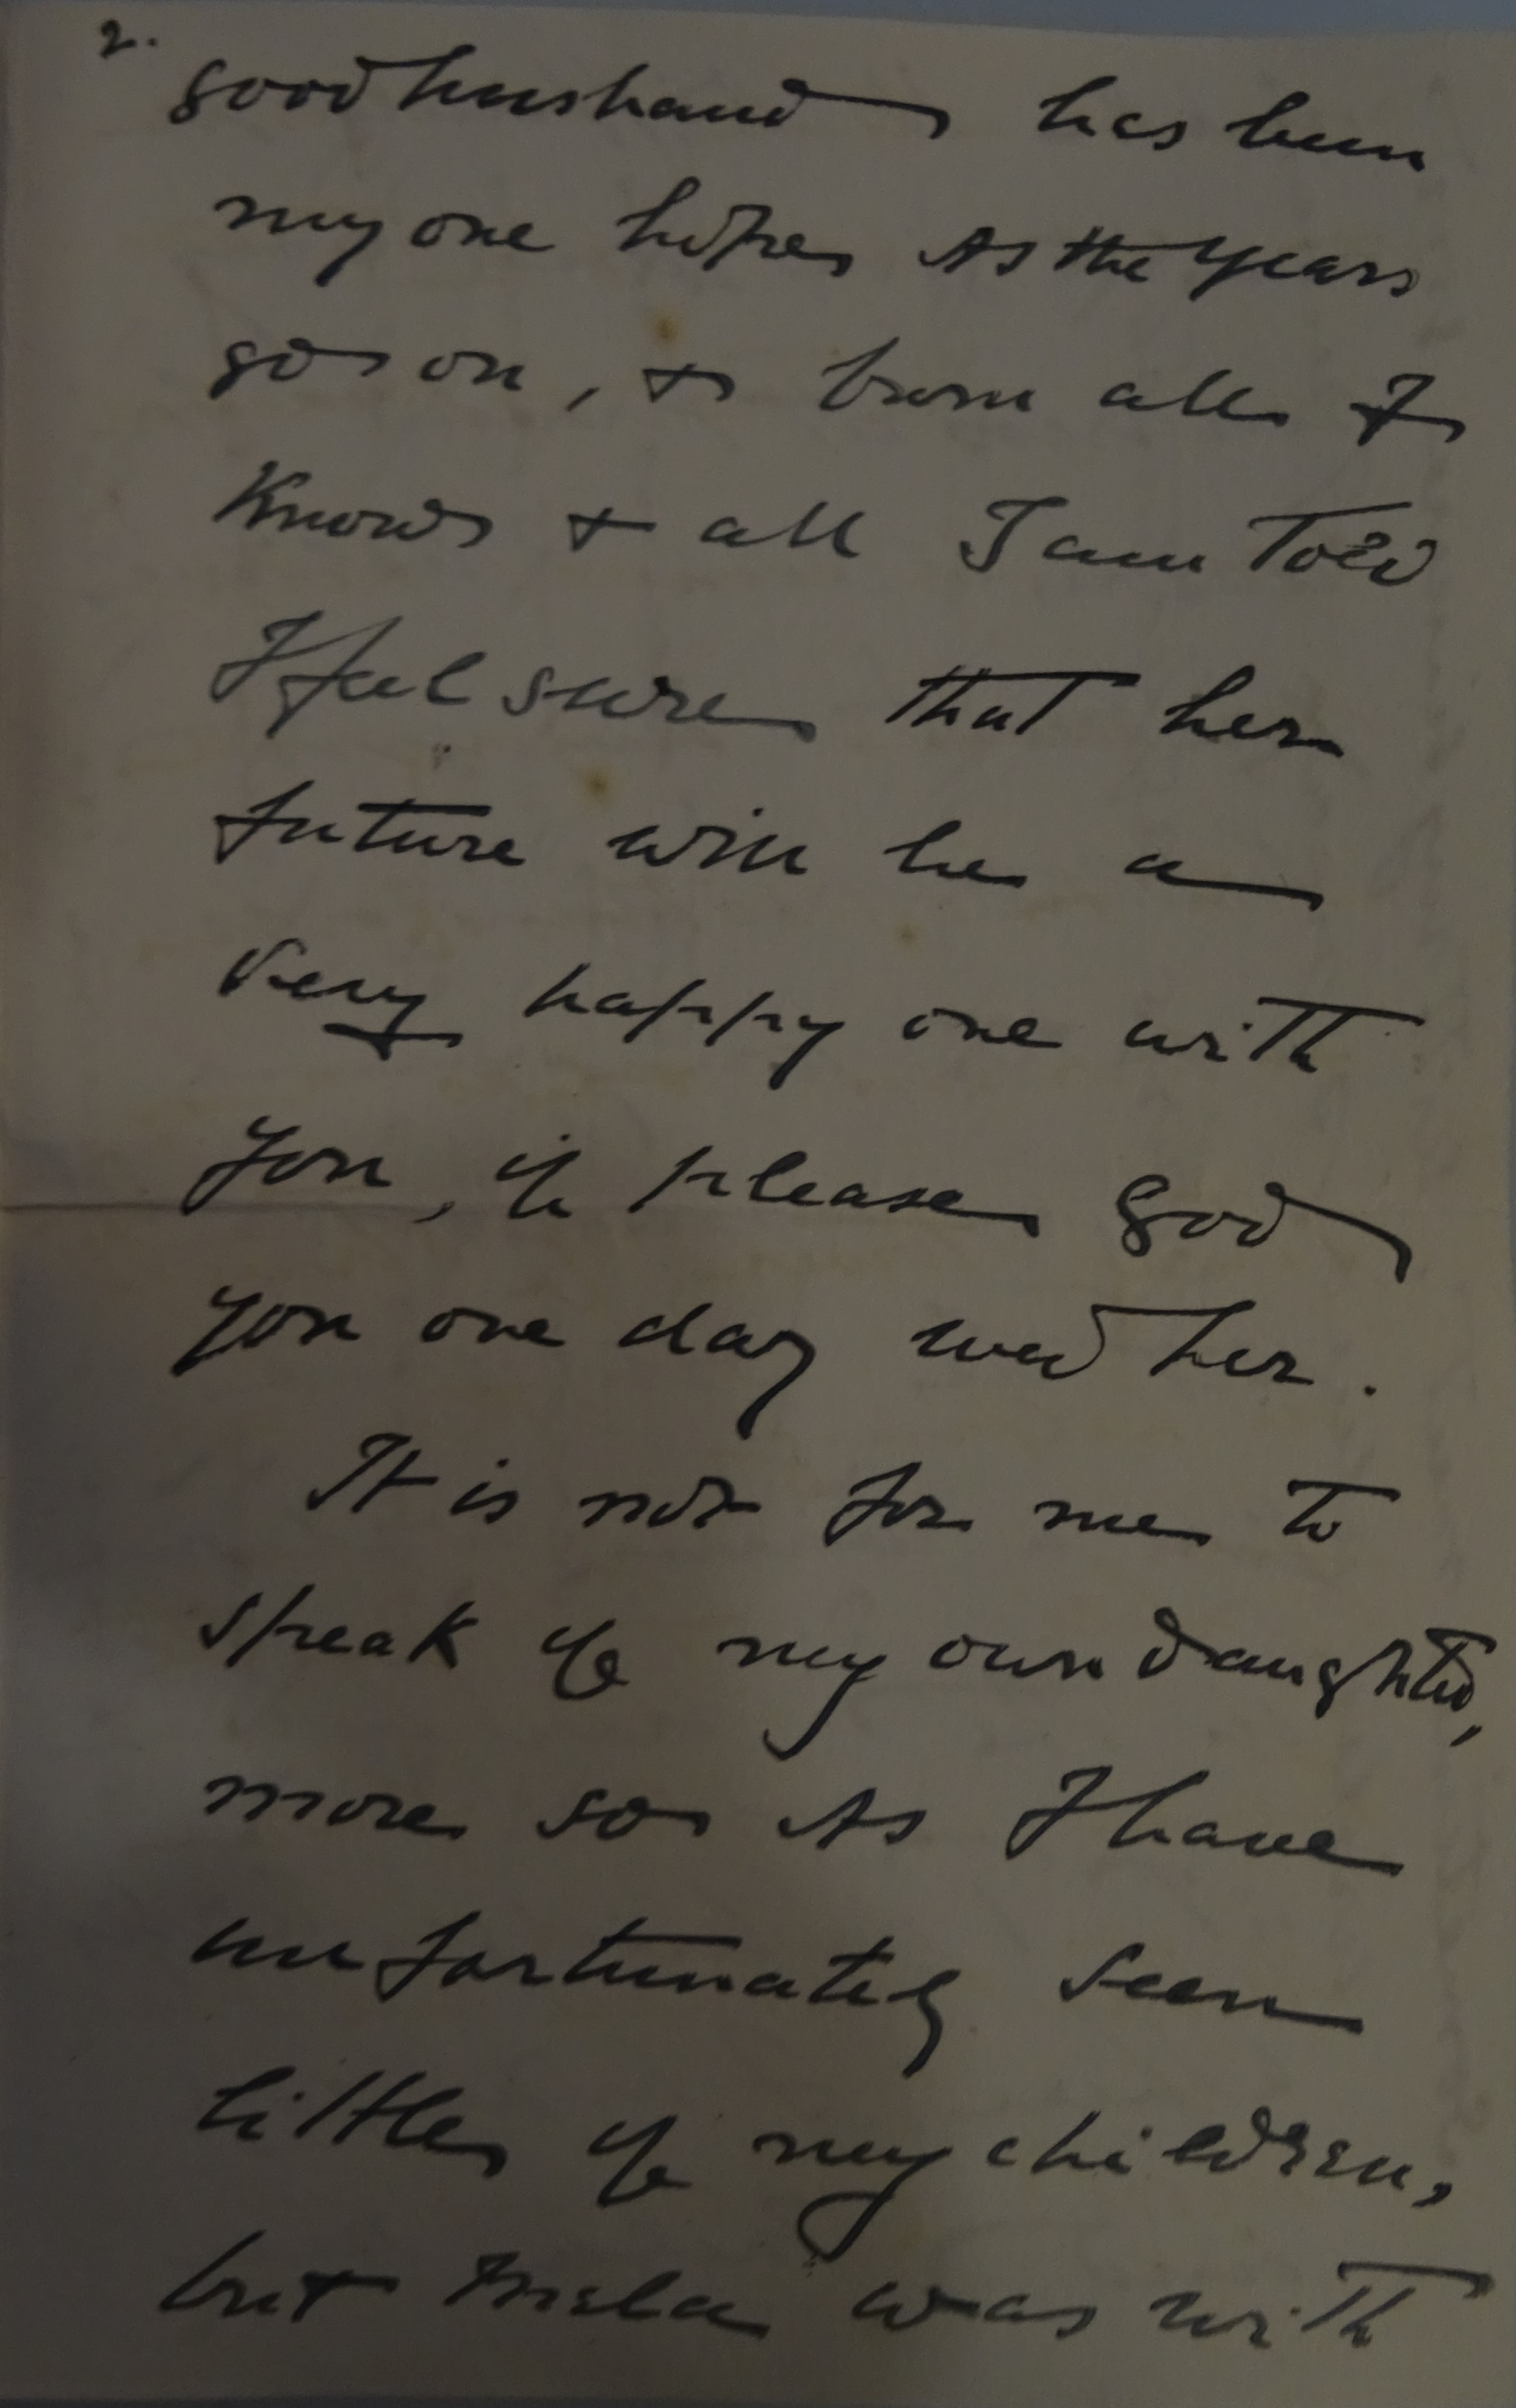 2.
good husband has been
my one hope, as the years
go on, & from all I
Know & all I am Told
I feel sure that her
future will be a
very happy one with
you, if please God
you one day wed her.
It is not for me to
speak of my own daughter,
more so as I have
unfortunately seen
little of my children,
but was with